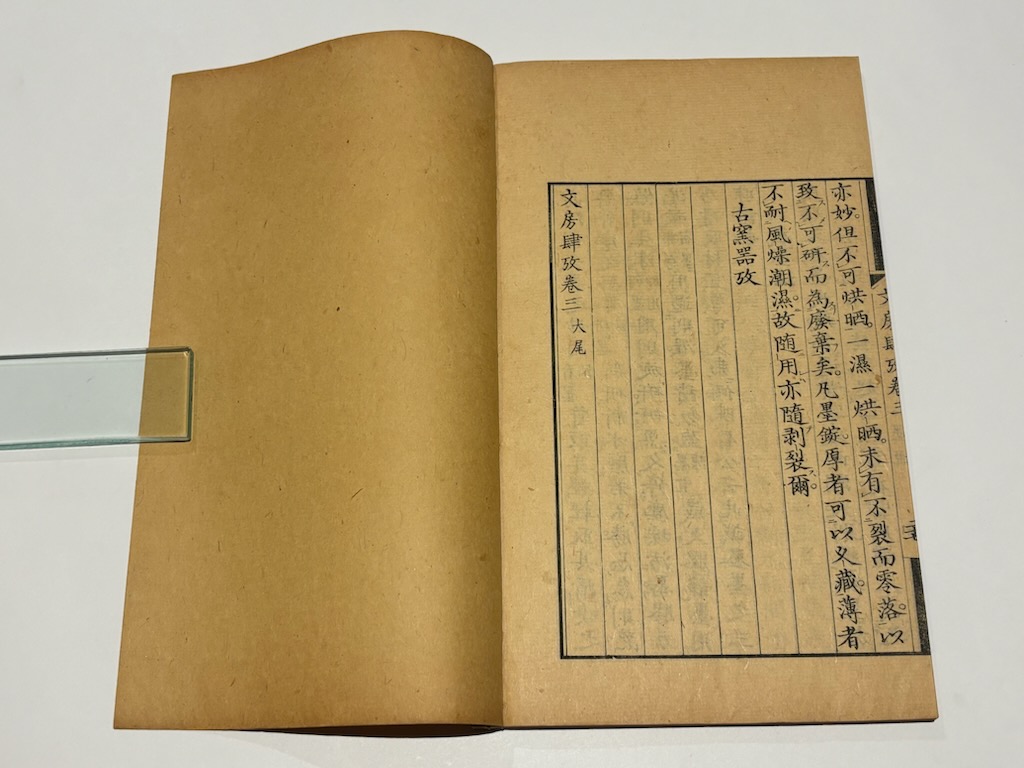 亦妙。但不可烘晒。一濕一烘晒。未有不裂而零落。以
致不可研而為廢棄矣。凡墨錠厚者可以久藏。薄者
不耐風燥潮濕。故随用亦隨剥裂爾。
古窯器攷
文房肆攷卷三 大尾
文房肆攷卷三